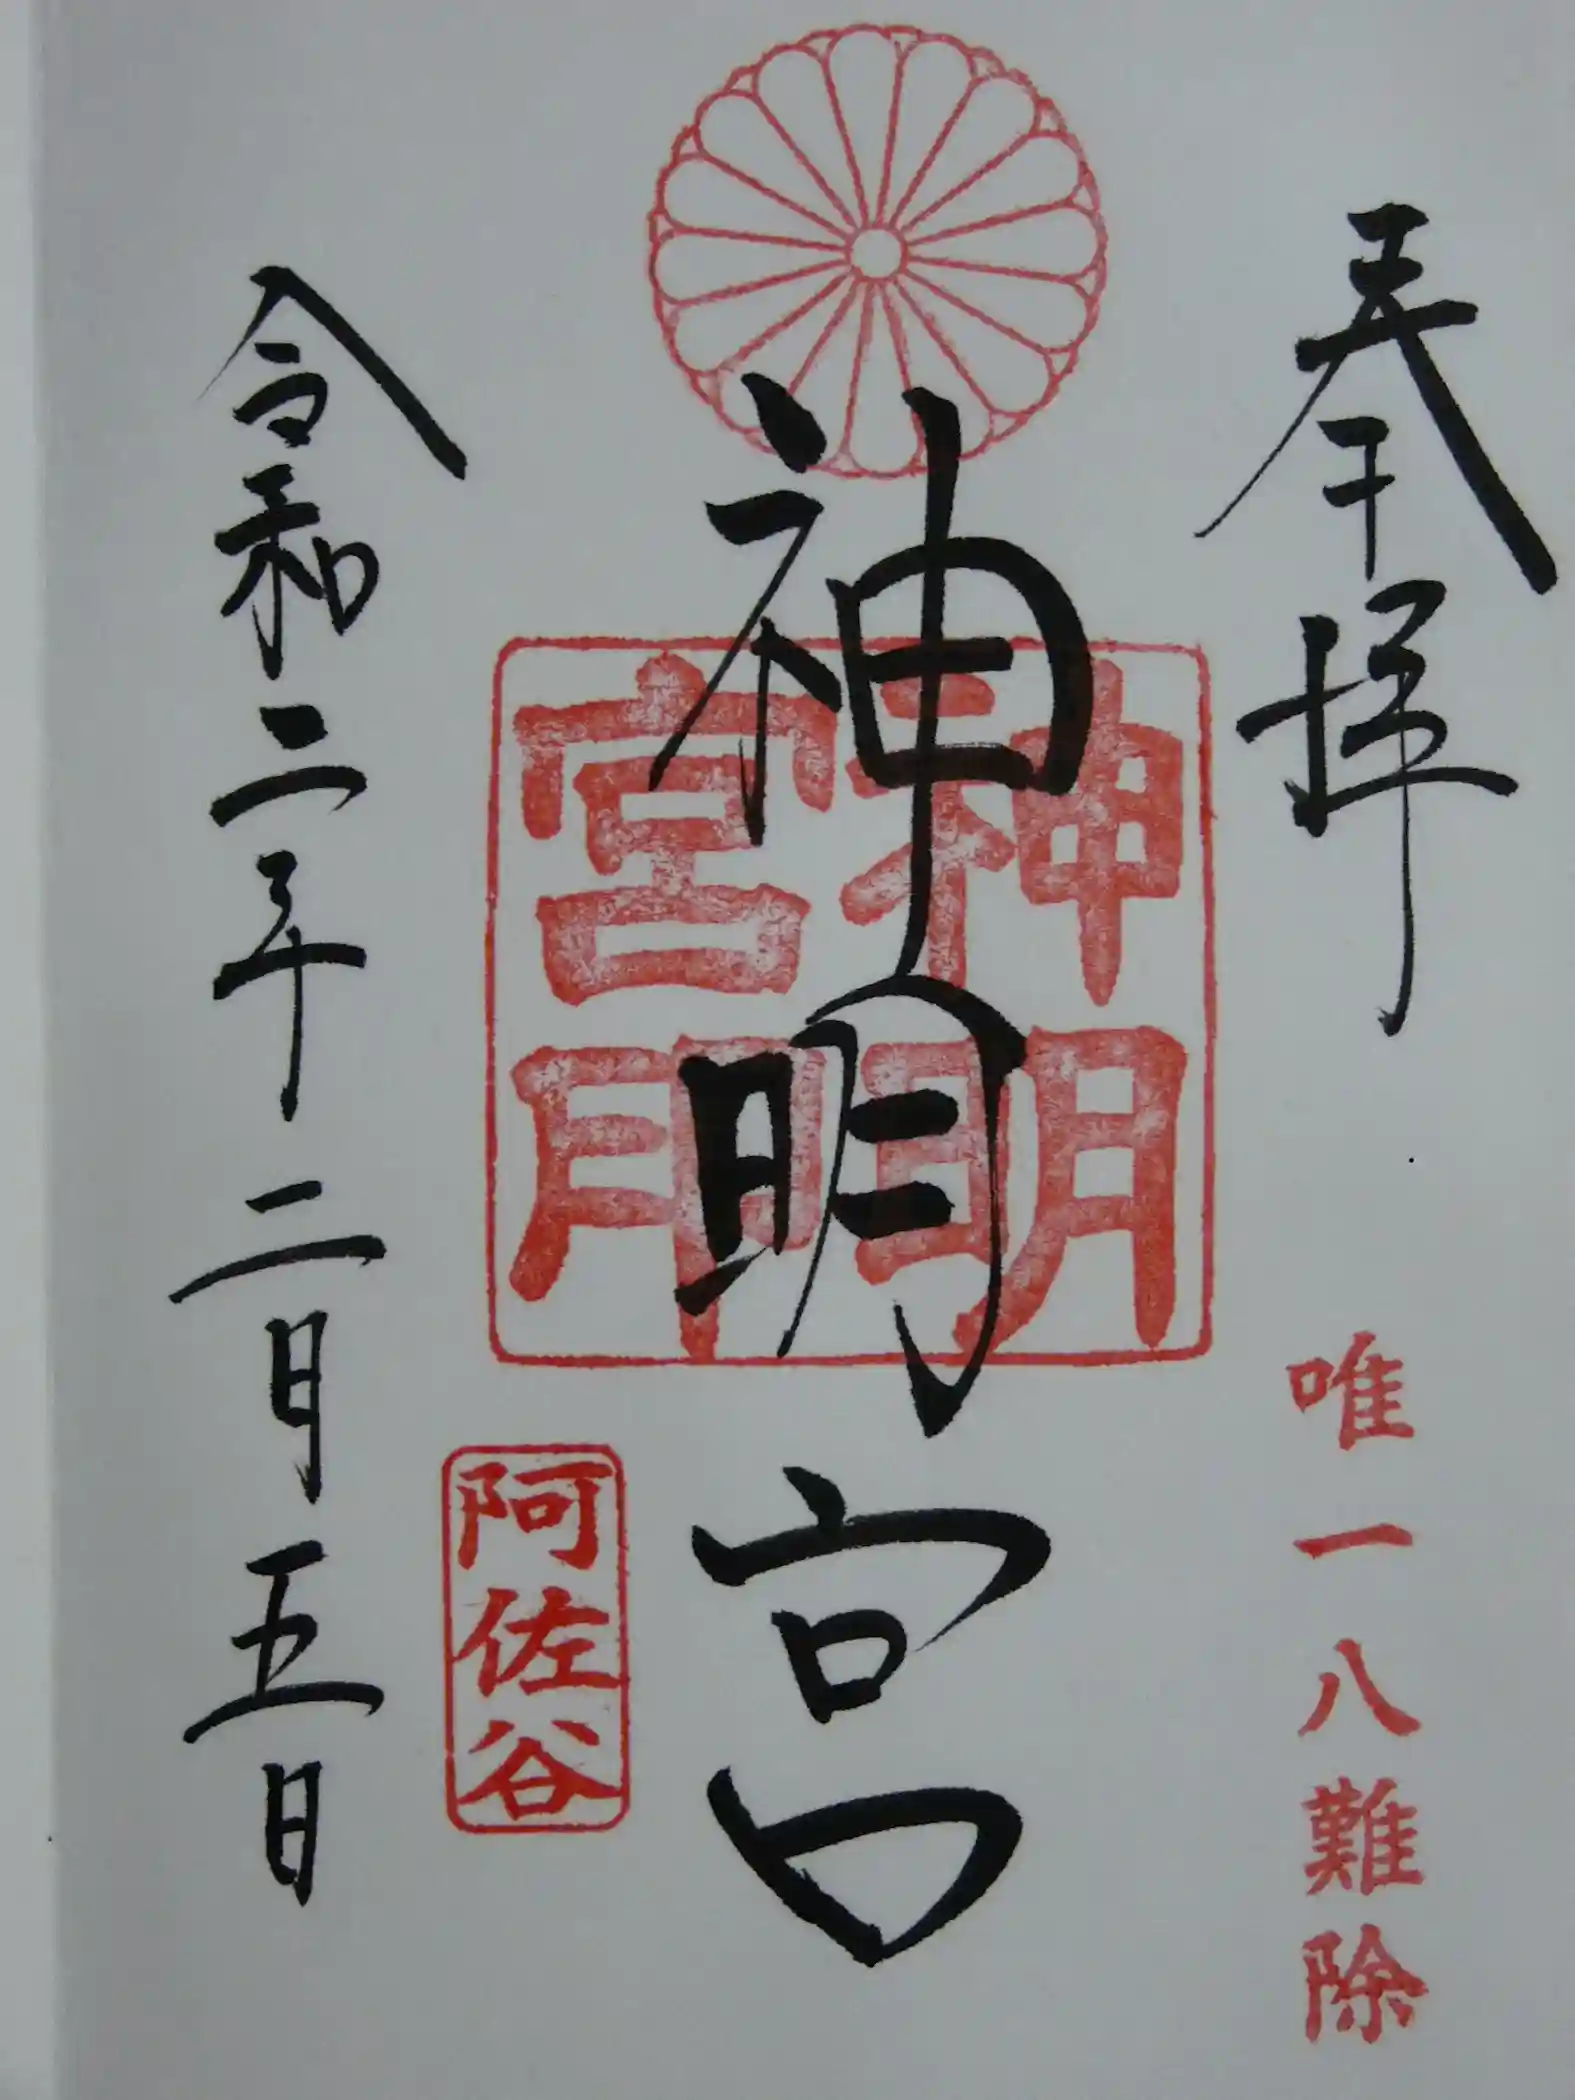 奉拝
唯一八難除
神明宮
神明宮印
阿佐谷
令和二年二月五日